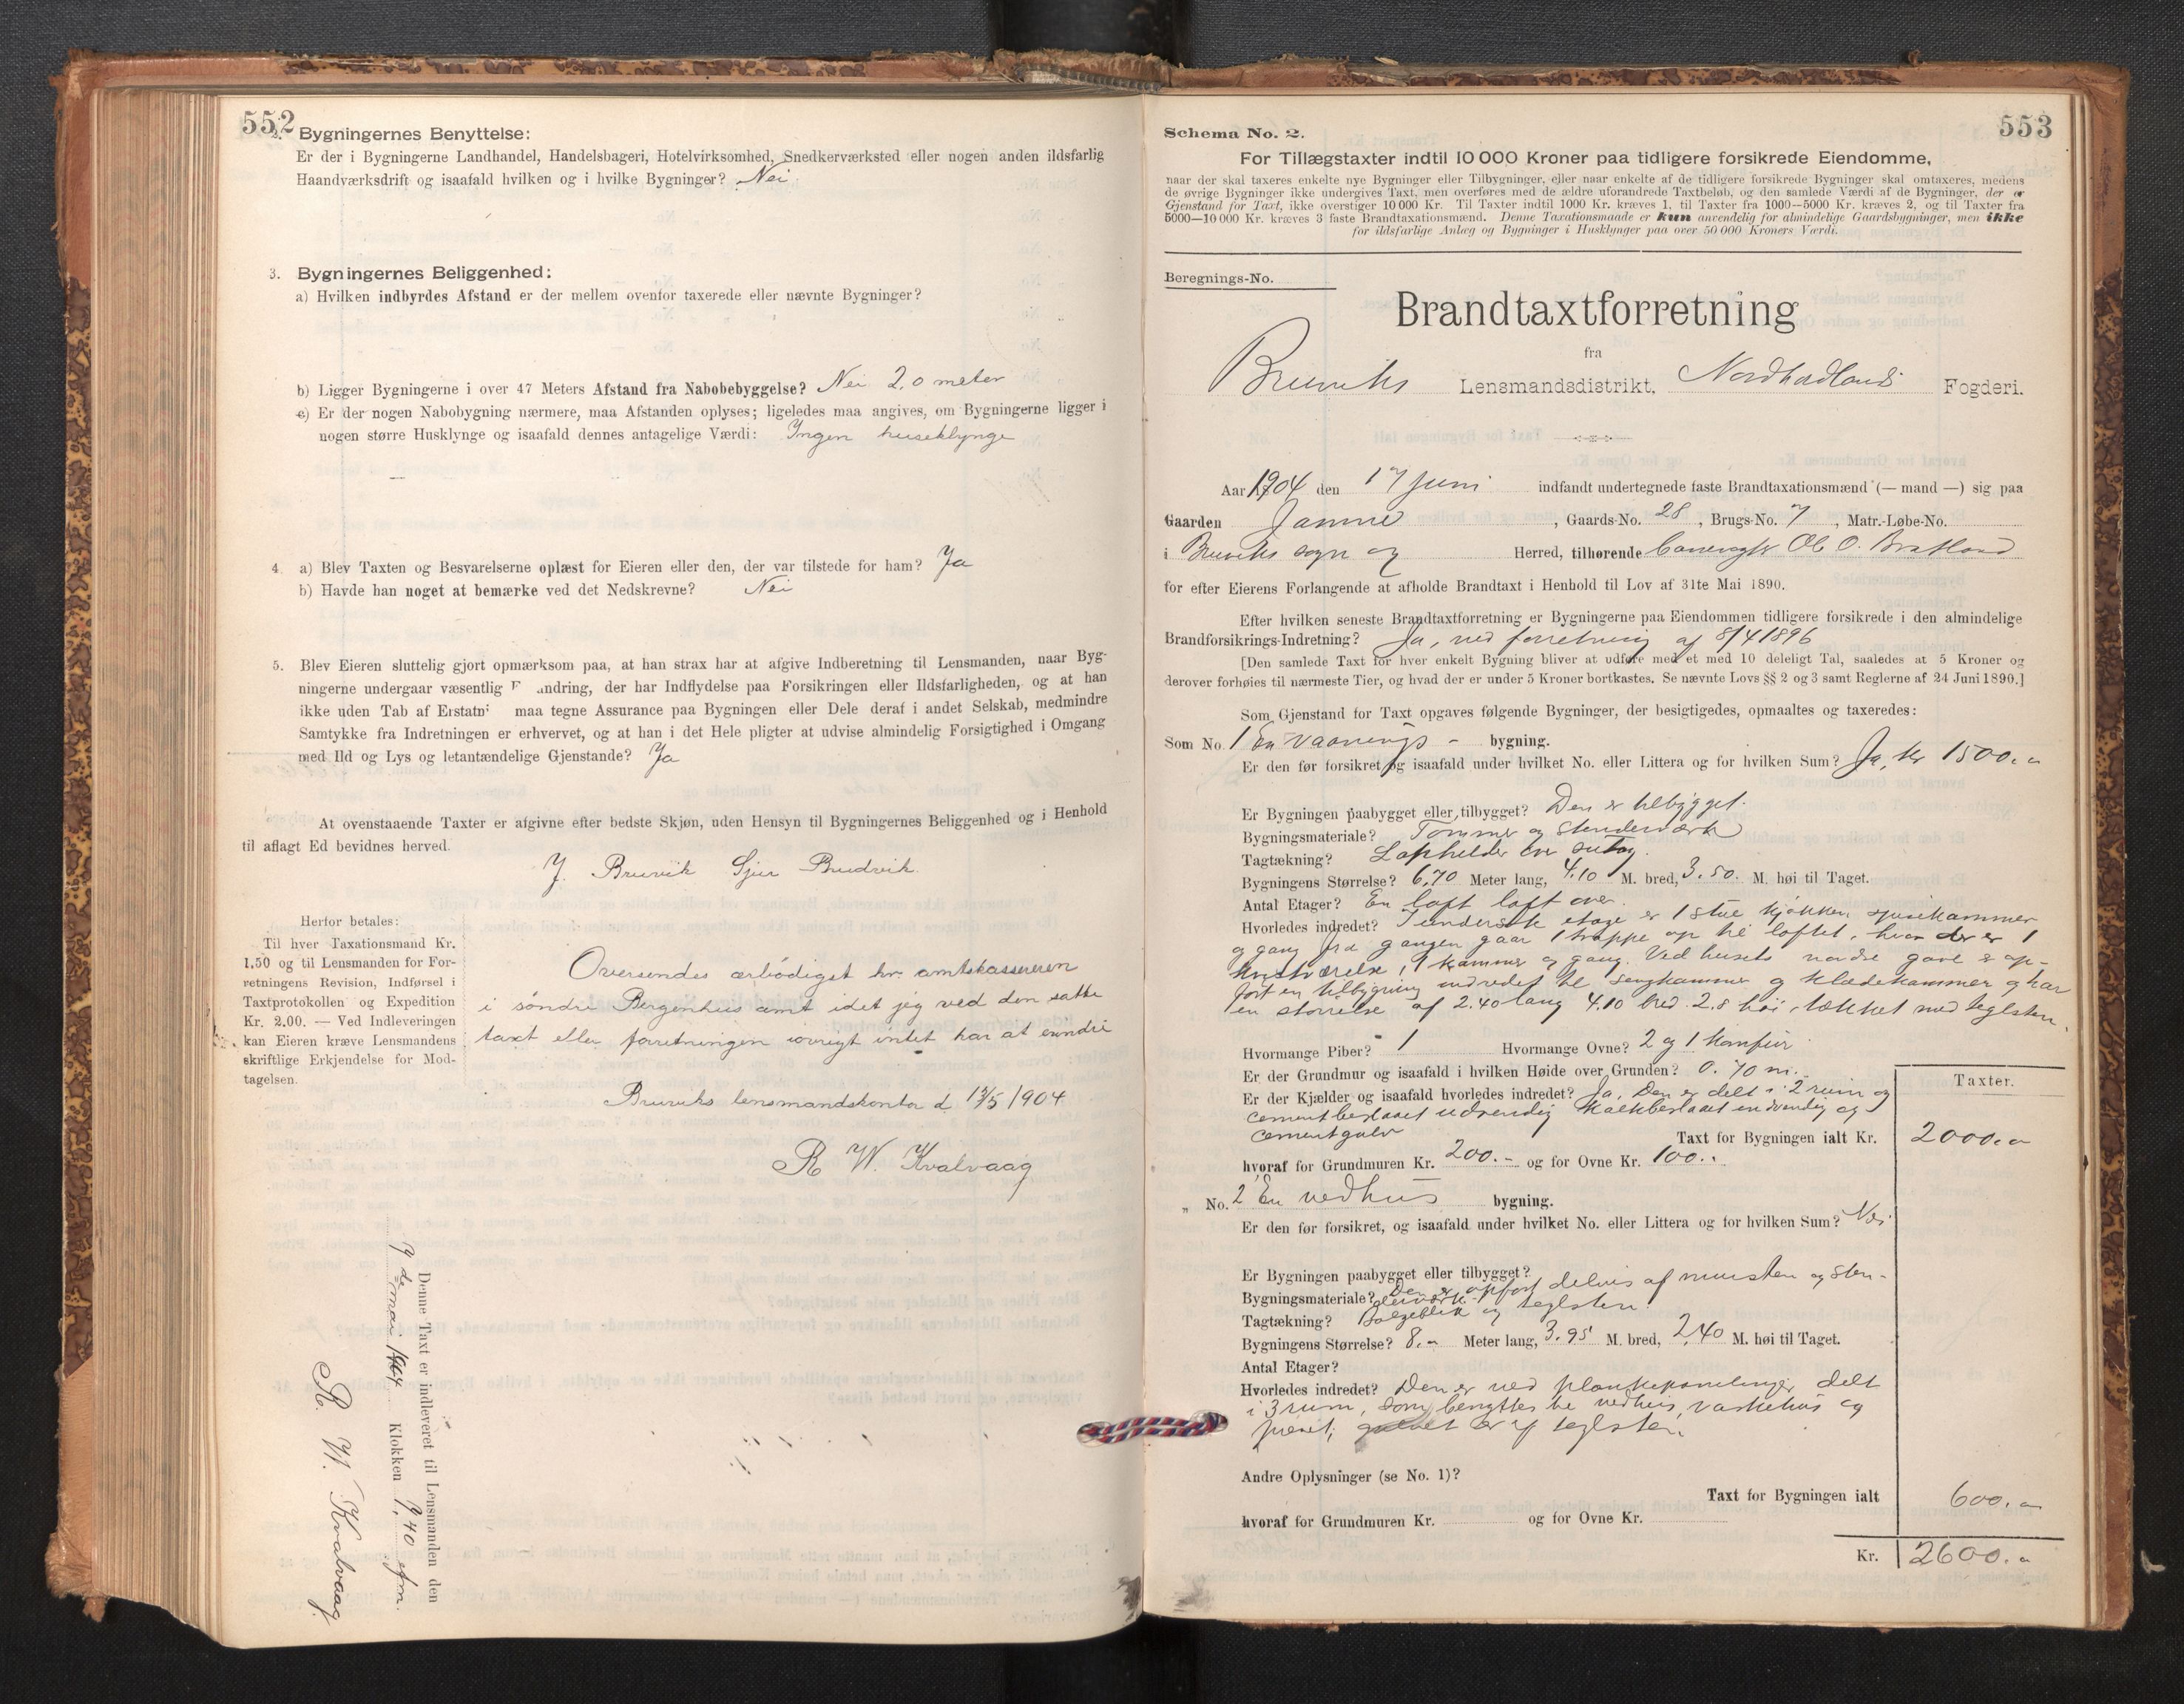 552
2. Bygningernes Benyttelse:
Er der i Bygningerne Landhandel, Handelsbageri, Hotelvirksomhed, Snedkerværksted eller nogen anden ildsfarlig
Haandværksdrift og isaafald hvilken og i hvilke Bygninger? Nei
3. Bygningernes Beliggenhed:
a) Hvilken indbyrdes Afstand er der mellem ovenfor taxerede eller nævnte Bygninger?
b) Ligger Bygningerne i over 47 Meters Afstand fra Nabobebyggelse? Nei 2,0 meter
c) Er der nogen Nabobygning nærmere, maa Afstanden oplyses; ligeledes maa angives, om Bygningerne ligger i
nogen større Husklynge og isaafald dennes antagelige Værdi: Ingen huseklynge
4. a) Blev Taxten og Besvarelserne oplæst for Eieren eller den, der var tilstede for ham? Ja
b) Havde han noget at bemærke ved det Nedskrevne? Nei
5. Blev Eieren sluttelig gjort opmærksom paa, at han strax har at afgive Indberetning til Lensmanden, naar Byg-
ningerne undergaar væsentlig F andring, der har Indflydelse paa Forsikringen eller Ildsfarligheden, og at han
ikke uden Tab af Erstatn maa tegne Assurance paa Bygningen eller Dele deraf i andet Selskab, medmindre
Samtykke fra Indretningen er erhvervet, og at han i det Hele pligter at udvise almindelig Forsigtighed i Omgang
med Ild og Lys og letantændelige Gjenstande? Ja
At ovenstaaende Taxter er afgivne efter bedste Skjøn, uden Hensyn til Bygningernes Beliggenhed og i Henhold
til aflagt Ed bevidnes herved.
J. Bruvik Sjur Brudvik
Herfor betales:
Til hver Taxationsmand Kr.
1,50 og til Lensmanden for For-
retningens Revision, Indførsel i
Taxtprotokollen og Expedition
Kr. 2.00. — Ved Indleveringen
kan Eieren kræve Lensmandens
skriftlige Erkjendelse for Mod-
tagelsen.
Oversendes ærbödigst hr. amtskassereren
i söndre Bergenhus amt idet jeg ved den satte
taxt eller forretningen iövrigt intet har at erindre
Bruviks lensmandskontor d. 13/5 1904
R W. Kvalvaag
Denne Taxt er indleveret til Lensmanden den
7de mai 1904 Klokken 7,40 efm.
R. W. Kvalvaag
553
Schema No. 2.
For Tillægstaxter indtil 10 000 Kroner paa tidligere forsikrede Eiendomme,
naar der skal taxeres enkelte nye Bygninger eller Tilbygninger, eller naar enkelte af de tidligere forsikrede Bygninger skal omtaxeres, medens
de øvrige Bygninger ikke undergives Taxt, men overføres med de ældre uforandrede Taxtbeløb, og den samlede Værdi af de Bygninger, der er
Gjenstand for Taxt, ikke overstiger 10 000 Kr. Til Taxter indtil 1000 Kr. kræves 1, til Taxter fra 1000—5000 Kr. kræves 2, og til Taxter fra
5000—10 000 Kr. kræves 3 faste Brandtaxationsmænd. Denne Taxationsmaade er kun anvendelig for almindelige Gaardsbygninger, men ikke
for ildsfarlige Anlæg og Bygninger i Husklynger paa over 50 000 Kroners Værdi.
Beregnings-No.
Brandtaxtforretning
fra
Bruviks Lensmandsdistrikt, Nordhordlands Fogderi.
Aar 1904 den 17 juni indfandt undertegnede faste Brandtaxationsmænd (— mand —) sig paa
Gaarden Jamne, Gaards-No. 28, Brugs-No. 7, Matr.-Løbe-No.
i Bruviks sogn og Herred, tilhørende Ole O. Bratland
for efter Eierens Forlangende at afholde Brandtaxt i Henhold til Lov af 31te Mai 1890.
Efter hvilken seneste Brandtaxtforretning er Bygningerne paa Eiendommen tidligere forsikrede i den almindelige
Brandforsikrings-Indretning? Ja, ved forretning af 8/4 1896
[Den samlede Taxt for hver enkelt Bygning bliver at udføre med et med 10 deleligt Tal, saaledes at 5 Kroner og
derover forhøies til nærmeste Tier, og hvad der er under 5 Kroner bortkastes. Se nævnte Lovs §§ 2 og 3 samt Reglerne af 24 Juni 1890.]
Som Gjenstand for Taxt opgaves følgende Bygninger, der besigtigedes, opmaaltes og taxeredes:
Som No. 1 En vaanings - bygning.
Er den før forsikret og isaafald under hvilket No. eller Littera og for hvilken Sum? Ja, kr 1500.
Er Bygningen paabygget eller tilbygget? Den er tilbygget.
Bygningsmateriale? Tømmer og stenderværk
Tagtækning? Laphelder over sutag.
Bygningens Størrelse? 6,70 Meter lang, 4.10 M. bred, 3.50. M. høi til Taget.
Antal Etager? En loft loft over.
Hvorledes indredet? I underste etage er 1 stue kjøkken spisekammer
og gang fra gangen gaar 1 trappe op til loftet, hvor der er 1
kvistværelse, 1 kammer og gang. Ved husets nordre gavl er op-
ført en tilbygning indredet til sengkammer og klædekammer og har
en størrelse af 2.40 lang 4.10 bred 2.8 høi, tækket med teglsten.
Hvormange Piber? 1 Hvormange Ovne? 2 og 1 komfur
Er der Grundmur og isaafald i hvilken Høide over Grunden? 0.70 m.
Er der Kjælder og isaafald hvorledes indredet? Ja, Den er delt i 2 rum og
cementbeslaaet udvendig kalkbeslaaet indvendig og
cementgulv
Taxter.
Taxt for Bygningen ialt Kr. 2000.
hvoraf for Grundmuren Kr. 200.- og for Ovne Kr. 100..
„ No. 2 En vedhus bygning.
Er den før forsikret, og isaafald under hvilket No. eller Littera og for hvilken Sum? Nei
Er Bygningen paabygget eller tilbygget?
Bygningsmateriale? Den er opført delvis af mursten og sten-
derværk.
Tagtækning? Bølgeblik og teglsten.
Bygningens Størrelse? 8.- Meter lang, 3.95 M. bred, 2,40 M. høi til Taget.
Antal Etager?
Hvorledes indredet? Den er ved plankepanelinger delt
i 3 rum, som benyttes til vedhus, vaskehus og
privet; gulvet er af teglsten.
Andre Oplysninger (se No. 1)?
Taxt for Bygningen ialt 600.
hvoraf for Grundmuren Kr. og for Ovne Kr.
Kr. 2600.